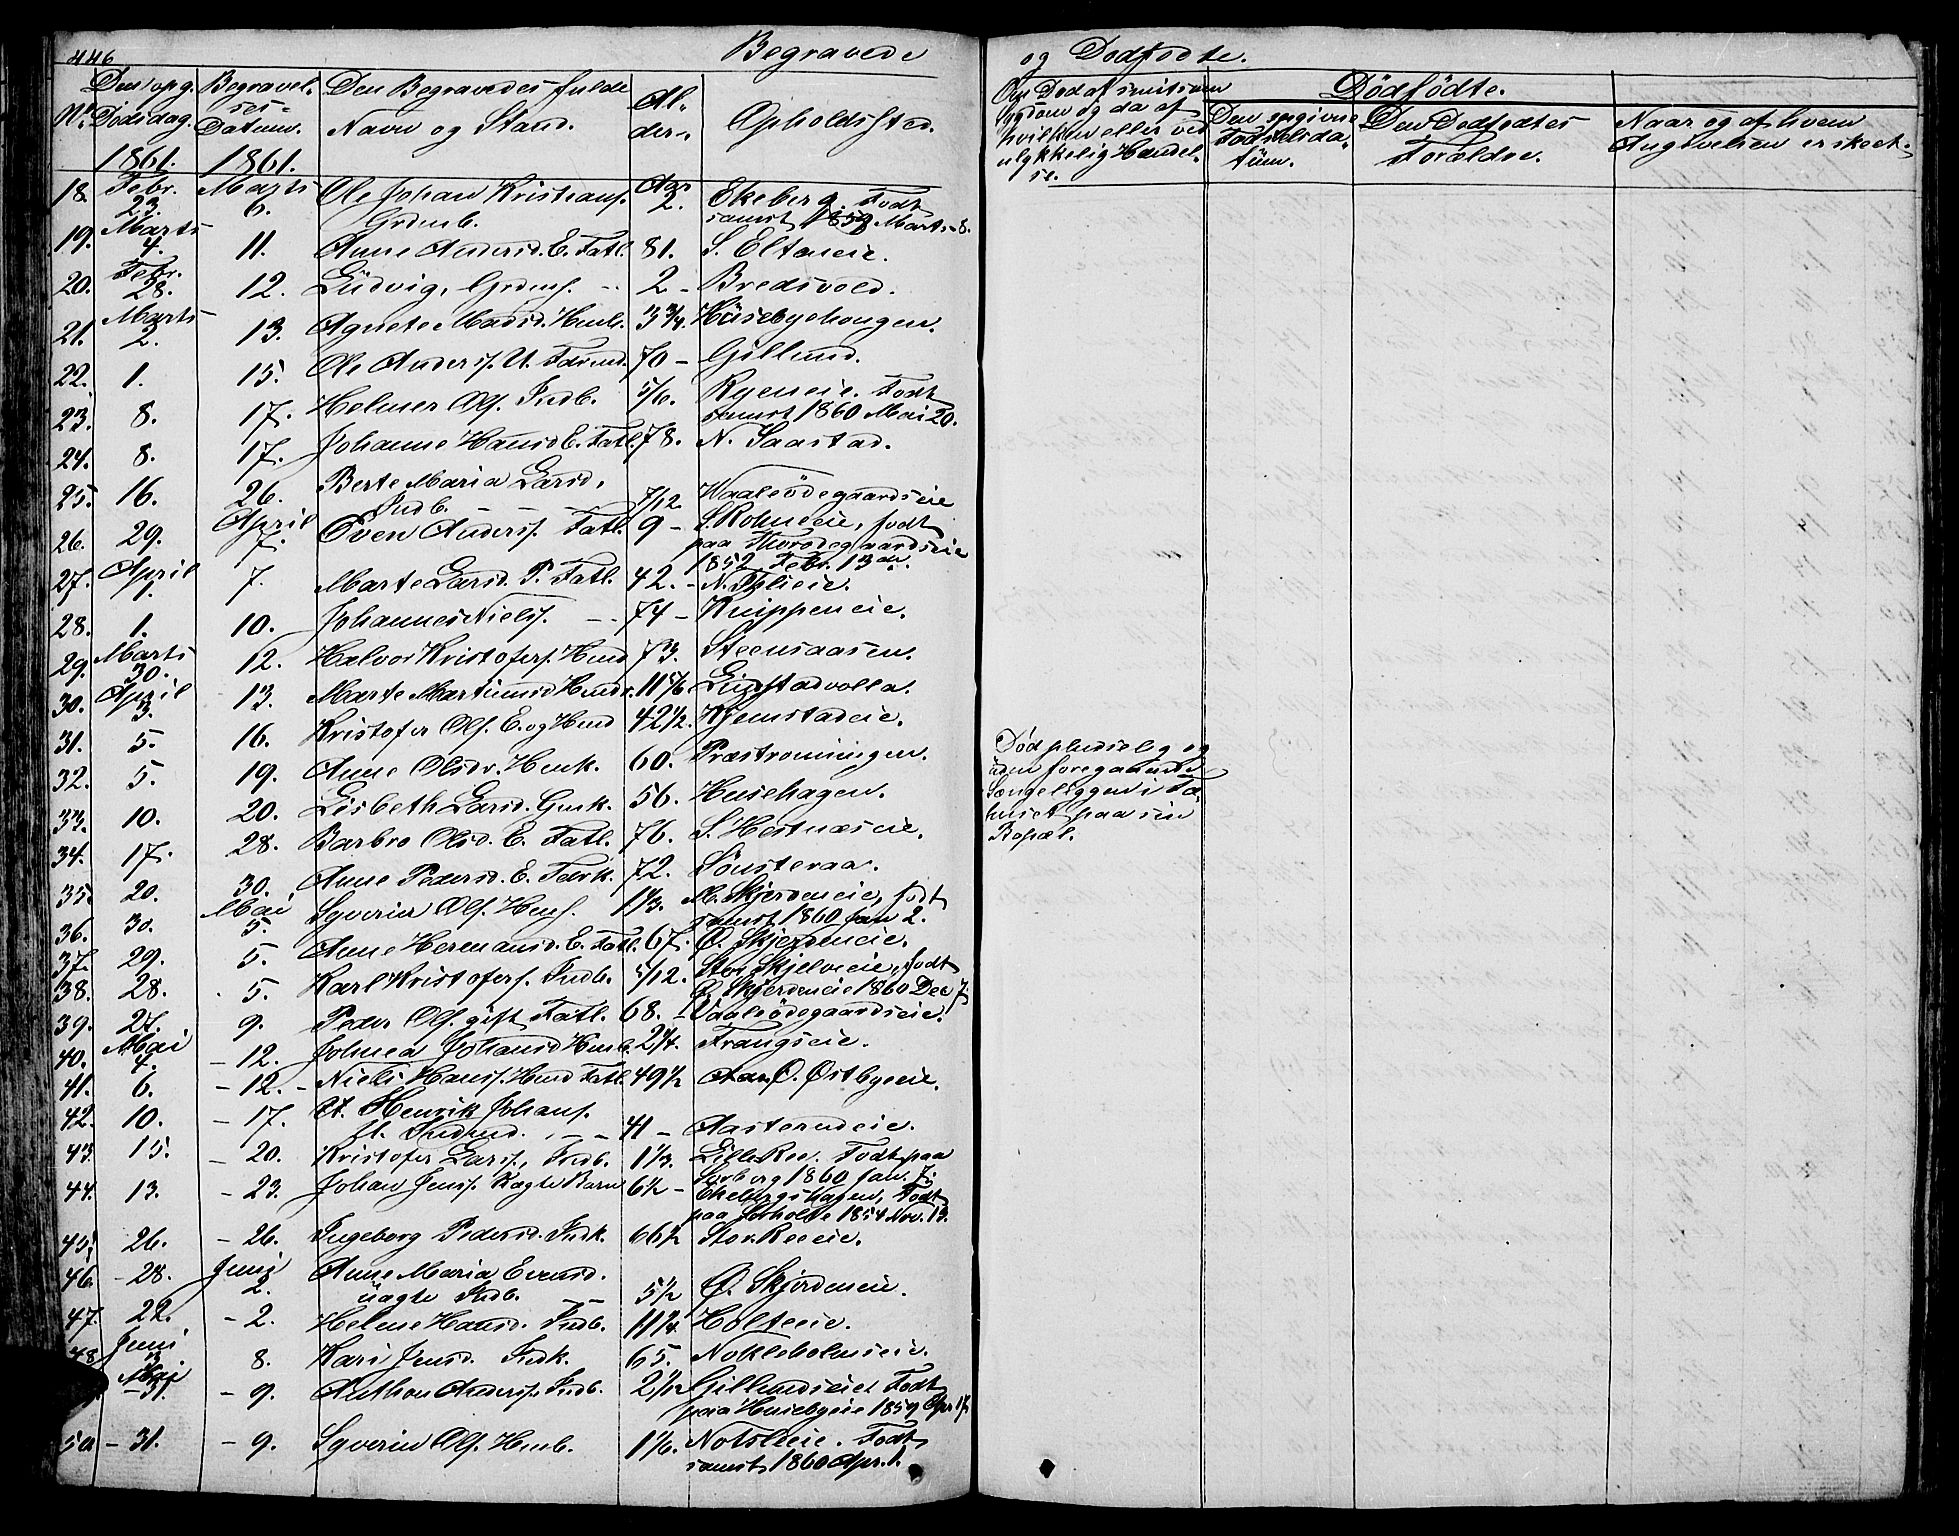 446
Begravede
og Dødfødte.
No. Den opg. Dødsdag. Begravelses-Datum. Den Begravedes fulde Navn og Stand. Alder. Opholdssted.
Om Død af smitsom Sygdom og da af hvilken eller ved ulykkelig Hændelse.
Dødfødte.
Den opgivne Fødselsdatum. Den Dødfødtes Forældre. Naar og af hvem Angivelsen er skeet.
1861. 1861.
18. Febr. 23. Marts 6. Ole Johan Kristians. Grdmb. Aar 2. Ekeberg. Født
samst 1859 Marts 8.
19. Marts 4. 11. Anne Andersd. E. Fatl. 81. S. Eltoneie.
20. Febr. 28. 12. Ludvig, Grdms. 2 - Bredsvold.
21. Marts 2. 13. Agnete Madsd. Hmb. 3 3/4 Husebyehougen.
22. 1. 15. Ole Anders. U. 70 - Gillund.
23. 8. 17. Helmer Ols. Indb. 5/6. Ryeneie. Født
samst 1860 Mai 20.
24. 8. 17. Johanne Hansd. E. Fatl. 78. N. Saastad.
25. 16. 26. Berte Maria Larsd.
Indb. 7/12 Waaleødegaardseie
26. 29. April 7. Even Anders. Fatl. 9 - født
paa
1852 Febr. 13de.
27. April 1. 7. Marte Larsd. P. Fatl. 42. -
28. 1. 10. Johannes Niels. 74 - Knippeneie.
29. Marts 30. 12. Halvor Kristofers. Hmd 73. Steensaasen.
30. April 3. 13. Marte Martinusd. 11 5/6
31. 5. 16. Kristofer Ols. E. og Hmd 42 1/2. Kjemstadeie.
32. 5. 19. Anne Olsdr. Hmk. 60. Præstroningen.
Død pludselig og
uden foregaaende
Sængeliggen i
paa sin
Bopæl.
33. 10. 20. Lisbeth Larsd. Gmk. 56. Husehagen.
34. 17. 28. Barbro Olsd. E. Fatl. 76. S. Hestnæseie.
35. 20. 30. Anne Pedersd. E. 72. Sønsteraa.
36. 30. Mai 5. Syverin Ols. Hms. 1 1/3. M. Skjerdeneie, født
samst 1860 Jan 2.
37. 29. 5. Anne Hermansd. E. Fatl. 67. Ø. Skjerdeneie.
38. 28. 5. Karl Kristofers. Indb. 5/12. Stor Skjelveie, født
Ø. Skjerdeneie 1860 Dec 7.
39. 27. 9. Peder Ols. gift Fatl. 68. - Vaaleødegaardseie.
40. Mai 4. - 12. Johnea Johansd Hmb. 2 1/4. Frangseie.
41. 6. - 12. - Niels Hans. Hmd Fatl. 49 1/2 Aar. Ø. Østbyeie.
42. 10. - 17. U. Henrik Johans.
fl. Indmd. 41 - Aasterudeie.
43. 15. - 20. Kristofer Lars., Indb. 1 1/3. Lille Ree. Født paa
1860 Jan. 7.
44. 13. - 23. Johan Jens. Uægte Barn 6 1/2 - Ekebergshagen, Født
paa 1854 Nov. 13.
45. 26. - 26. Ingeborg Pedersd. Indk. 66 1/2 Stor Reeeie.
46. - 28. Juni 2. Anne Maria Evensd.
uægte Indb. 5 1/2 Ø. Skjerdeneie.
47. 22. - 2. Helene Hansd. Indb. 11 1/4. Holteeie.
48 Juni 3 8. Kari Jensd. Indk. 65. Nokleholmseie.
Mai - 31. - 9. Anthon Anders. Indb. 2 1/12 Gillundseie. Født
paa Husebyeie 1859 Apr 17
50 - 31. - 9. Syverin Ols. Hmb. 1 1/6. Født
samst 1860 Apr. 1.